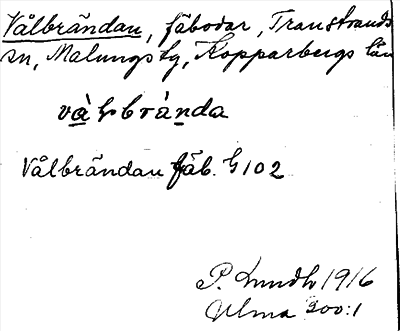 Vålbrändan, fäbodar, Transtrands
sn, Malungs tg, Kopparbergs län
Vålbrändan fäb. G 102
P. Lundh 1916
Ulma 300:1